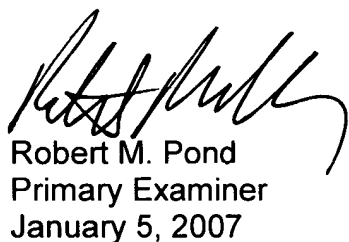 Robert M. Pond
Primary Examiner
January 5, 2007